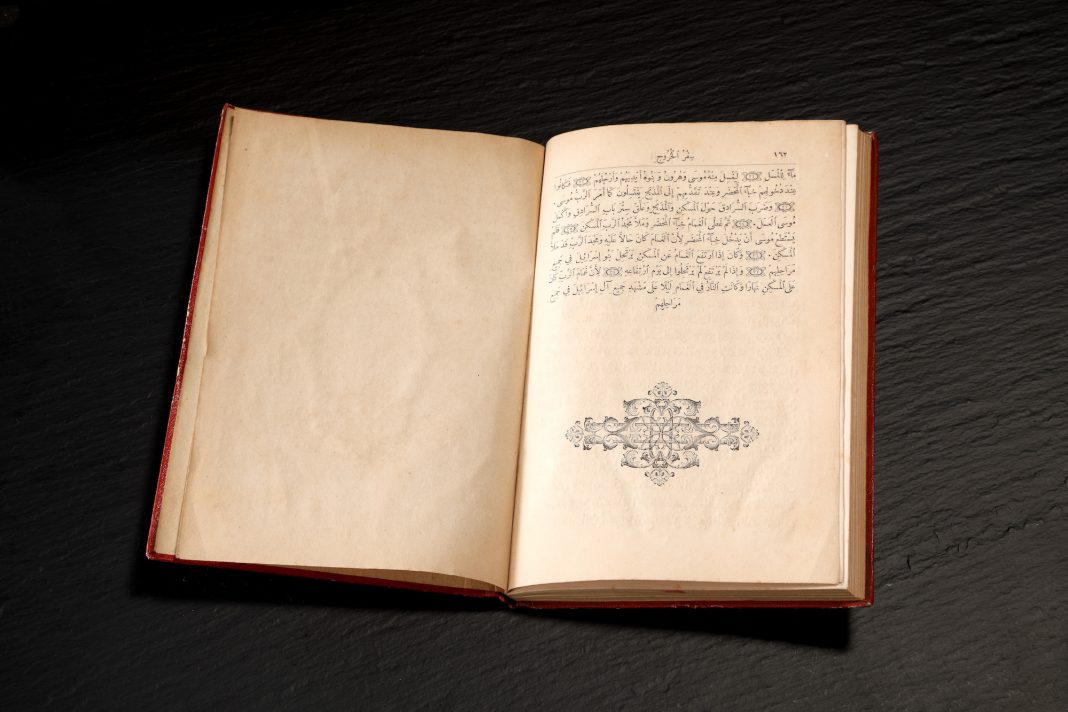 سِفْرُ ٱلْخُرُوجِ ١٦٢
مَآءً لِلْغُسْلِ لِيَغْسِلَ مِنْهُ مُوسَى وَهٰرُونُ وَبَنُوهُ أَيْدِيَهُمْ وَأَرْجُلَهُمْ فَكَانُوا
عِنْدَ دُخُولِهِمْ خِبَآءَ ٱلْمَحْضَرِ وَعِنْدَ تَقَدُّمِهِمْ إِلَى ٱلْمَذْبَحِ يَغْتَسِلُونَ كَمَا أَمَرَ ٱلرَّبُّ مُوسَى.
وَضَرَبَ ٱلسُّرَادِقَ حَوْلَ ٱلْمَسْكِنِ وَٱلْمَذْبَحِ وَعَلَّقَ سِتْرَ بَابِ ٱلسُّرَادِقِ وَأَكْمَلَ
مُوسَى ٱلْعَمَلَ. ثُمَّ غَطَّى ٱلْغَمَامُ خِبَآءَ ٱلْمَحْضَرِ وَمَلَأَ مَجْدُ ٱلرَّبِّ ٱلْمَسْكِنَ فَلَمْ
يَسْتَطِعْ مُوسَى أَنْ يَدْخُلَ خِبَآءَ ٱلْمَحْضَرِ لِأَنَّ ٱلْغَمَامَ كَانَ حَالًّا عَلَيْهِ وَمَجْدُ ٱلرَّبِّ قَدْ مَلَأَ
ٱلْمَسْكِنَ. وَكَانَ إِذَا ٱرْتَفَعَ ٱلْغَمَامُ عَنِ ٱلْمَسْكِنِ يَرْتَحِلُ بَنُو إِسْرَائِيلَ فِي جَمِيعِ
مَرَاحِلِهِمْ وَإِذَا لَمْ يَرْتَفِعْ لَمْ يَرْتَحِلُوا إِلَى يَوْمِ ٱرْتِفَاعِهِ لِأَنَّ غَمَامَ ٱلرَّبِّ كَانَ
عَلَى ٱلْمَسْكِنِ نَهَارًا وَكَانَتِ ٱلنَّارُ فِي ٱلْغَمَامِ لَيْلًا عَلَى مَشْهَدِ جَمِيعِ آلِ إِسْرَائِيلَ فِي جَمِيعِ
مَرَاحِلِهِمْ